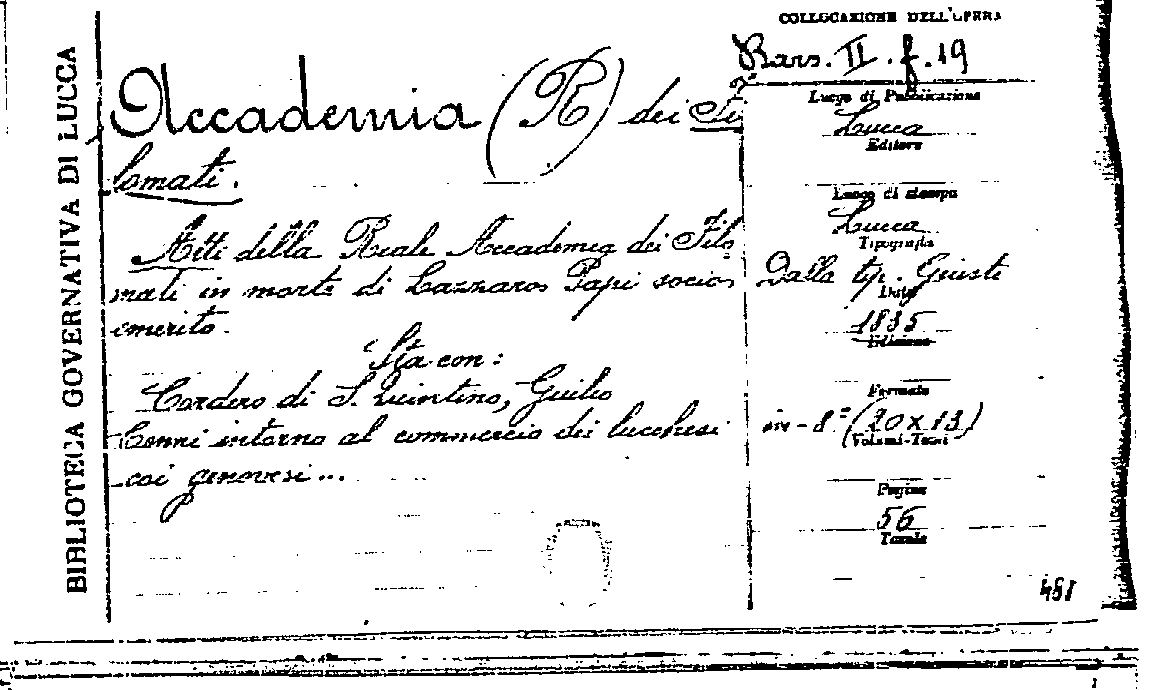 BIBLIOTECA GOVERNATIVA DI LUCCA
Accademia (R) dei Fi
lomati.
Atti della Reale Accademia dei Filo
mati in morte di Lazzaro Papi socio
emerito.
Sta con:
Cordero di S. Quintino, Guilio
Cenni intorno al commercio dei lucchesi
coi genovesi...
COLLOCAZIONE DELL'OPERA
Bars. II. f. 19
Luogo di Pubblicazione
Lucca
Editore
Luogo di stampa
Lucca
Tipografia
Dalla tip. Giusti
Data
1835
Edizione
Formato
in-8º (20x13)
Volumi-Tomi
Pagine
56
Tavole
481